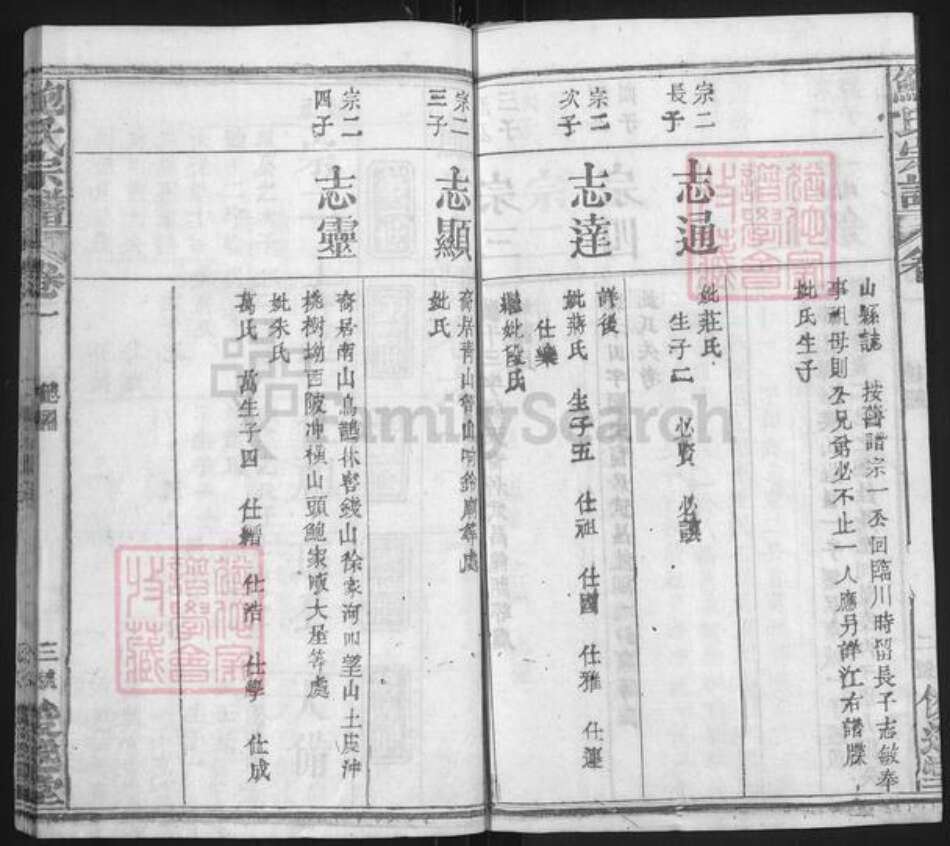 鮑氏宗譜
卷
山縣誌 按舊譜宗一丞回臨川時留長子志敏奉
事祖母則丞兄弟必不止一人應另詳江右譜牒
妣氏生子
宗二
長子
志通
妣莊氏
生子二 必賢 必謨
宗二
次子
志達
詳後
妣蔣氏 生子五 仕祖 仕國 仕雅 仕運
仕樂
繼妣段氏
宗二
三子
志顯
妣氏
宗二
四子
志靈
裔居南山烏鵲林
錢山徐家河
望山土皮沖
桃樹坳西陂冲橫山頭鮑家
大屋等處
妣朱氏
萬氏 萬生子四 仕稻 仕浩 仕學 仕成
鮑氏宗譜
卷一
三
FamilySearch